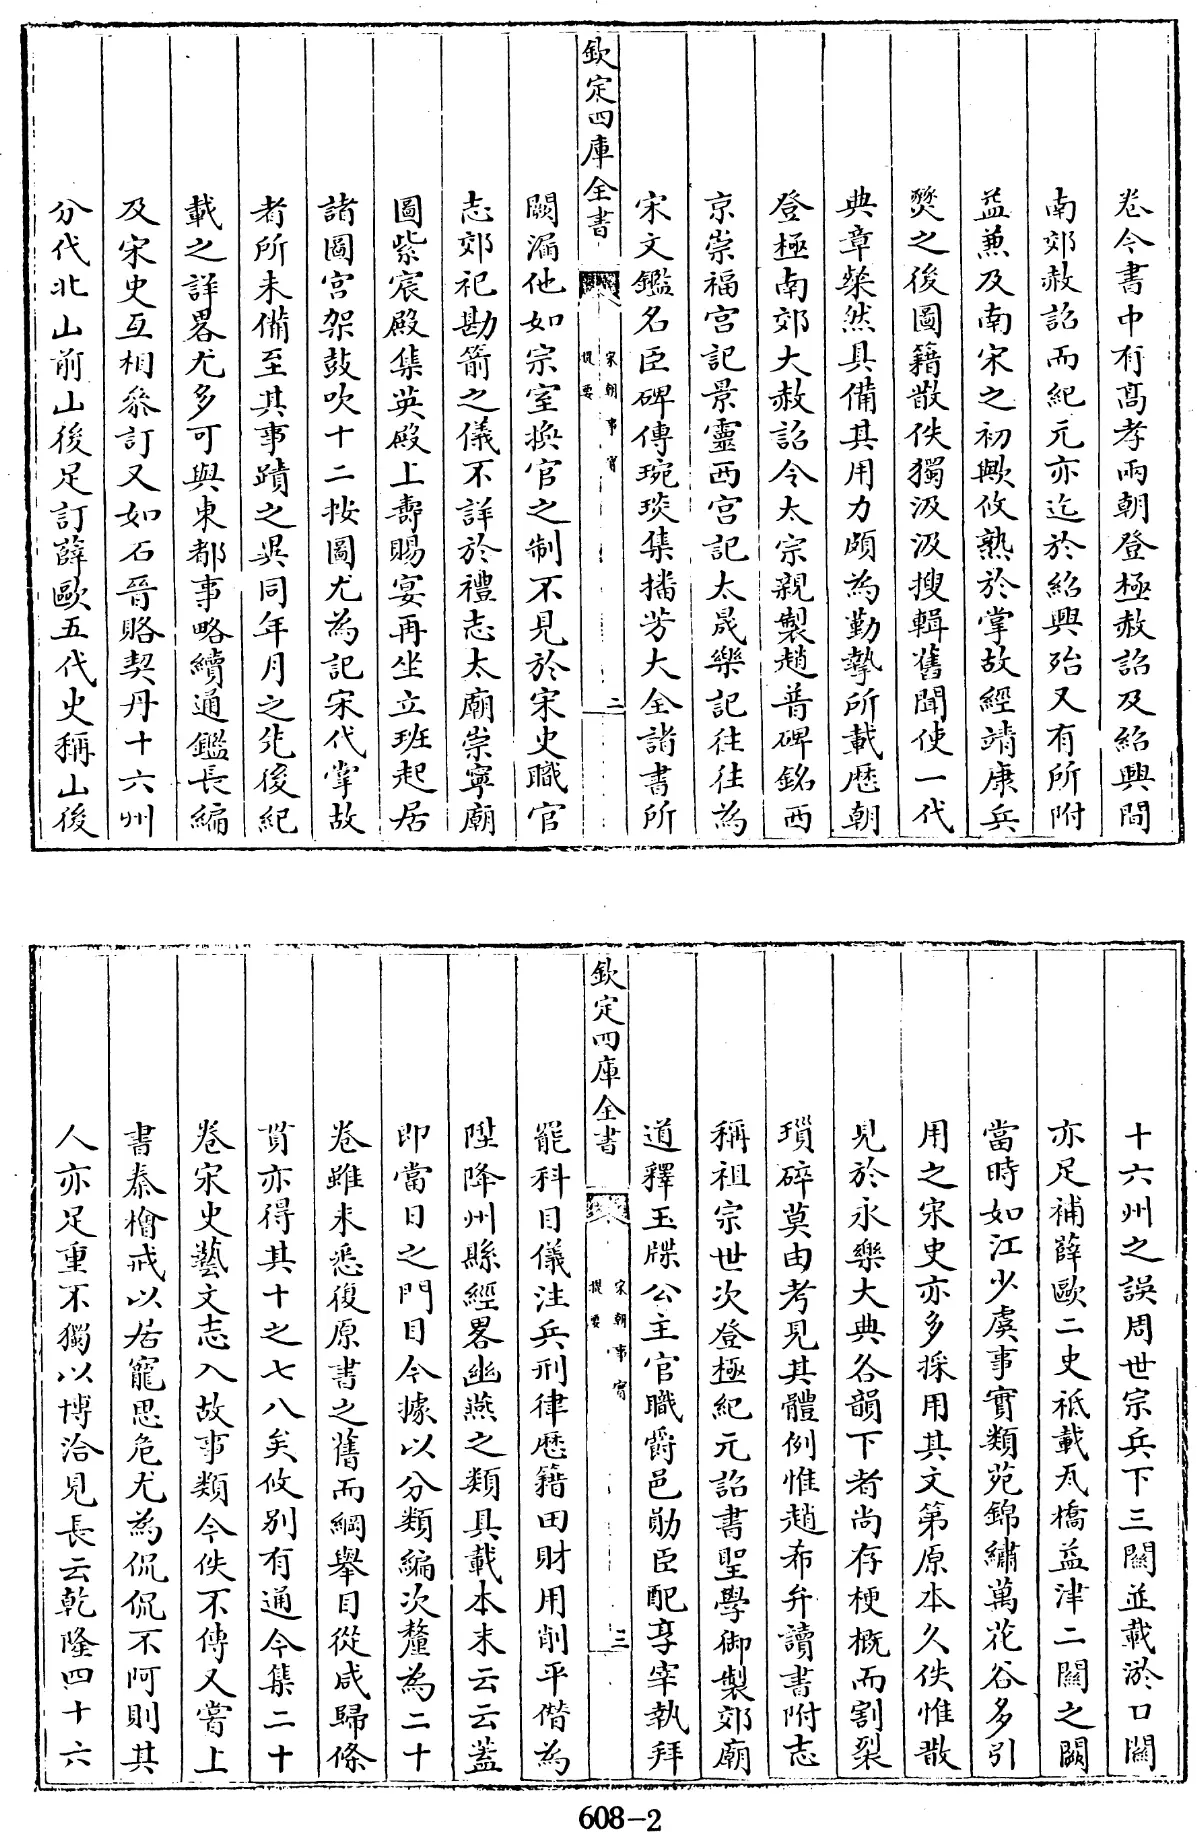 卷今書中有髙孝兩朝登極赦詔及紹興間
南郊赦詔而紀元亦迄於紹興殆又有所附
益兼及南宋之初歟攸熟於掌故經靖康兵
燹之後圖籍散佚獨汲汲搜輯舊聞使一代
典章粲然具備其用力頗為勤摯所載歴朝
登極南郊大赦詔令太宗親製趙普碑銘西
京崇福宮記景靈西宮記大晟樂記往往為
宋文鑑名臣碑傳琬琰集播芳大全諸書所
欽定四庫全書
宋朝事實
提要
二
闕漏他如宗室換官之制不見於宋史職官
志郊祀勘箭之儀不詳於禮志太廟崇寧廟
圖紫宸殿集英殿上壽賜宴再坐立班起居
諸圖宮架鼓吹十二按圖尤為記宋代掌故
者所未備至其事蹟之異同年月之先後紀
載之詳畧尤多可與東都事略續通鑑長編
及宋史互相叅訂又如石晉賂契丹十六州
分代北山前山後足訂薛歐五代史稱山後
十六州之誤周世宗兵下三關並載淤口關
亦足補薛歐二史祗載瓦橋益津二關之闕
當時如江少虞事實類苑錦繡萬花谷多引
用之宋史亦多採用其文第原本久佚惟散
見於永樂大典各韻下者尚存梗概而割裂
瑣碎莫由考見其體例惟趙希弁讀書附志
稱祖宗世次登極紀元詔書聖學御製郊廟
道釋玉牒公主官職爵邑勛臣配享宰執拜
欽定四庫全書
宋朝事實
提要
三
罷科目儀注兵刑律歴籍田財用削平僭為
陞降州縣經畧幽燕之類具載本末云云蓋
即當日之門目今據以分類編次釐為二十
卷雖未悉復原書之舊而綱舉目從咸歸條
貫亦得其十之七八矣攸別有通今集二十
卷宋史藝文志入故事類今佚不傳又嘗上
書秦檜戒以居寵思危尤為侃侃不阿則其
人亦足重不獨以博洽見長云乾隆四十六
608-2